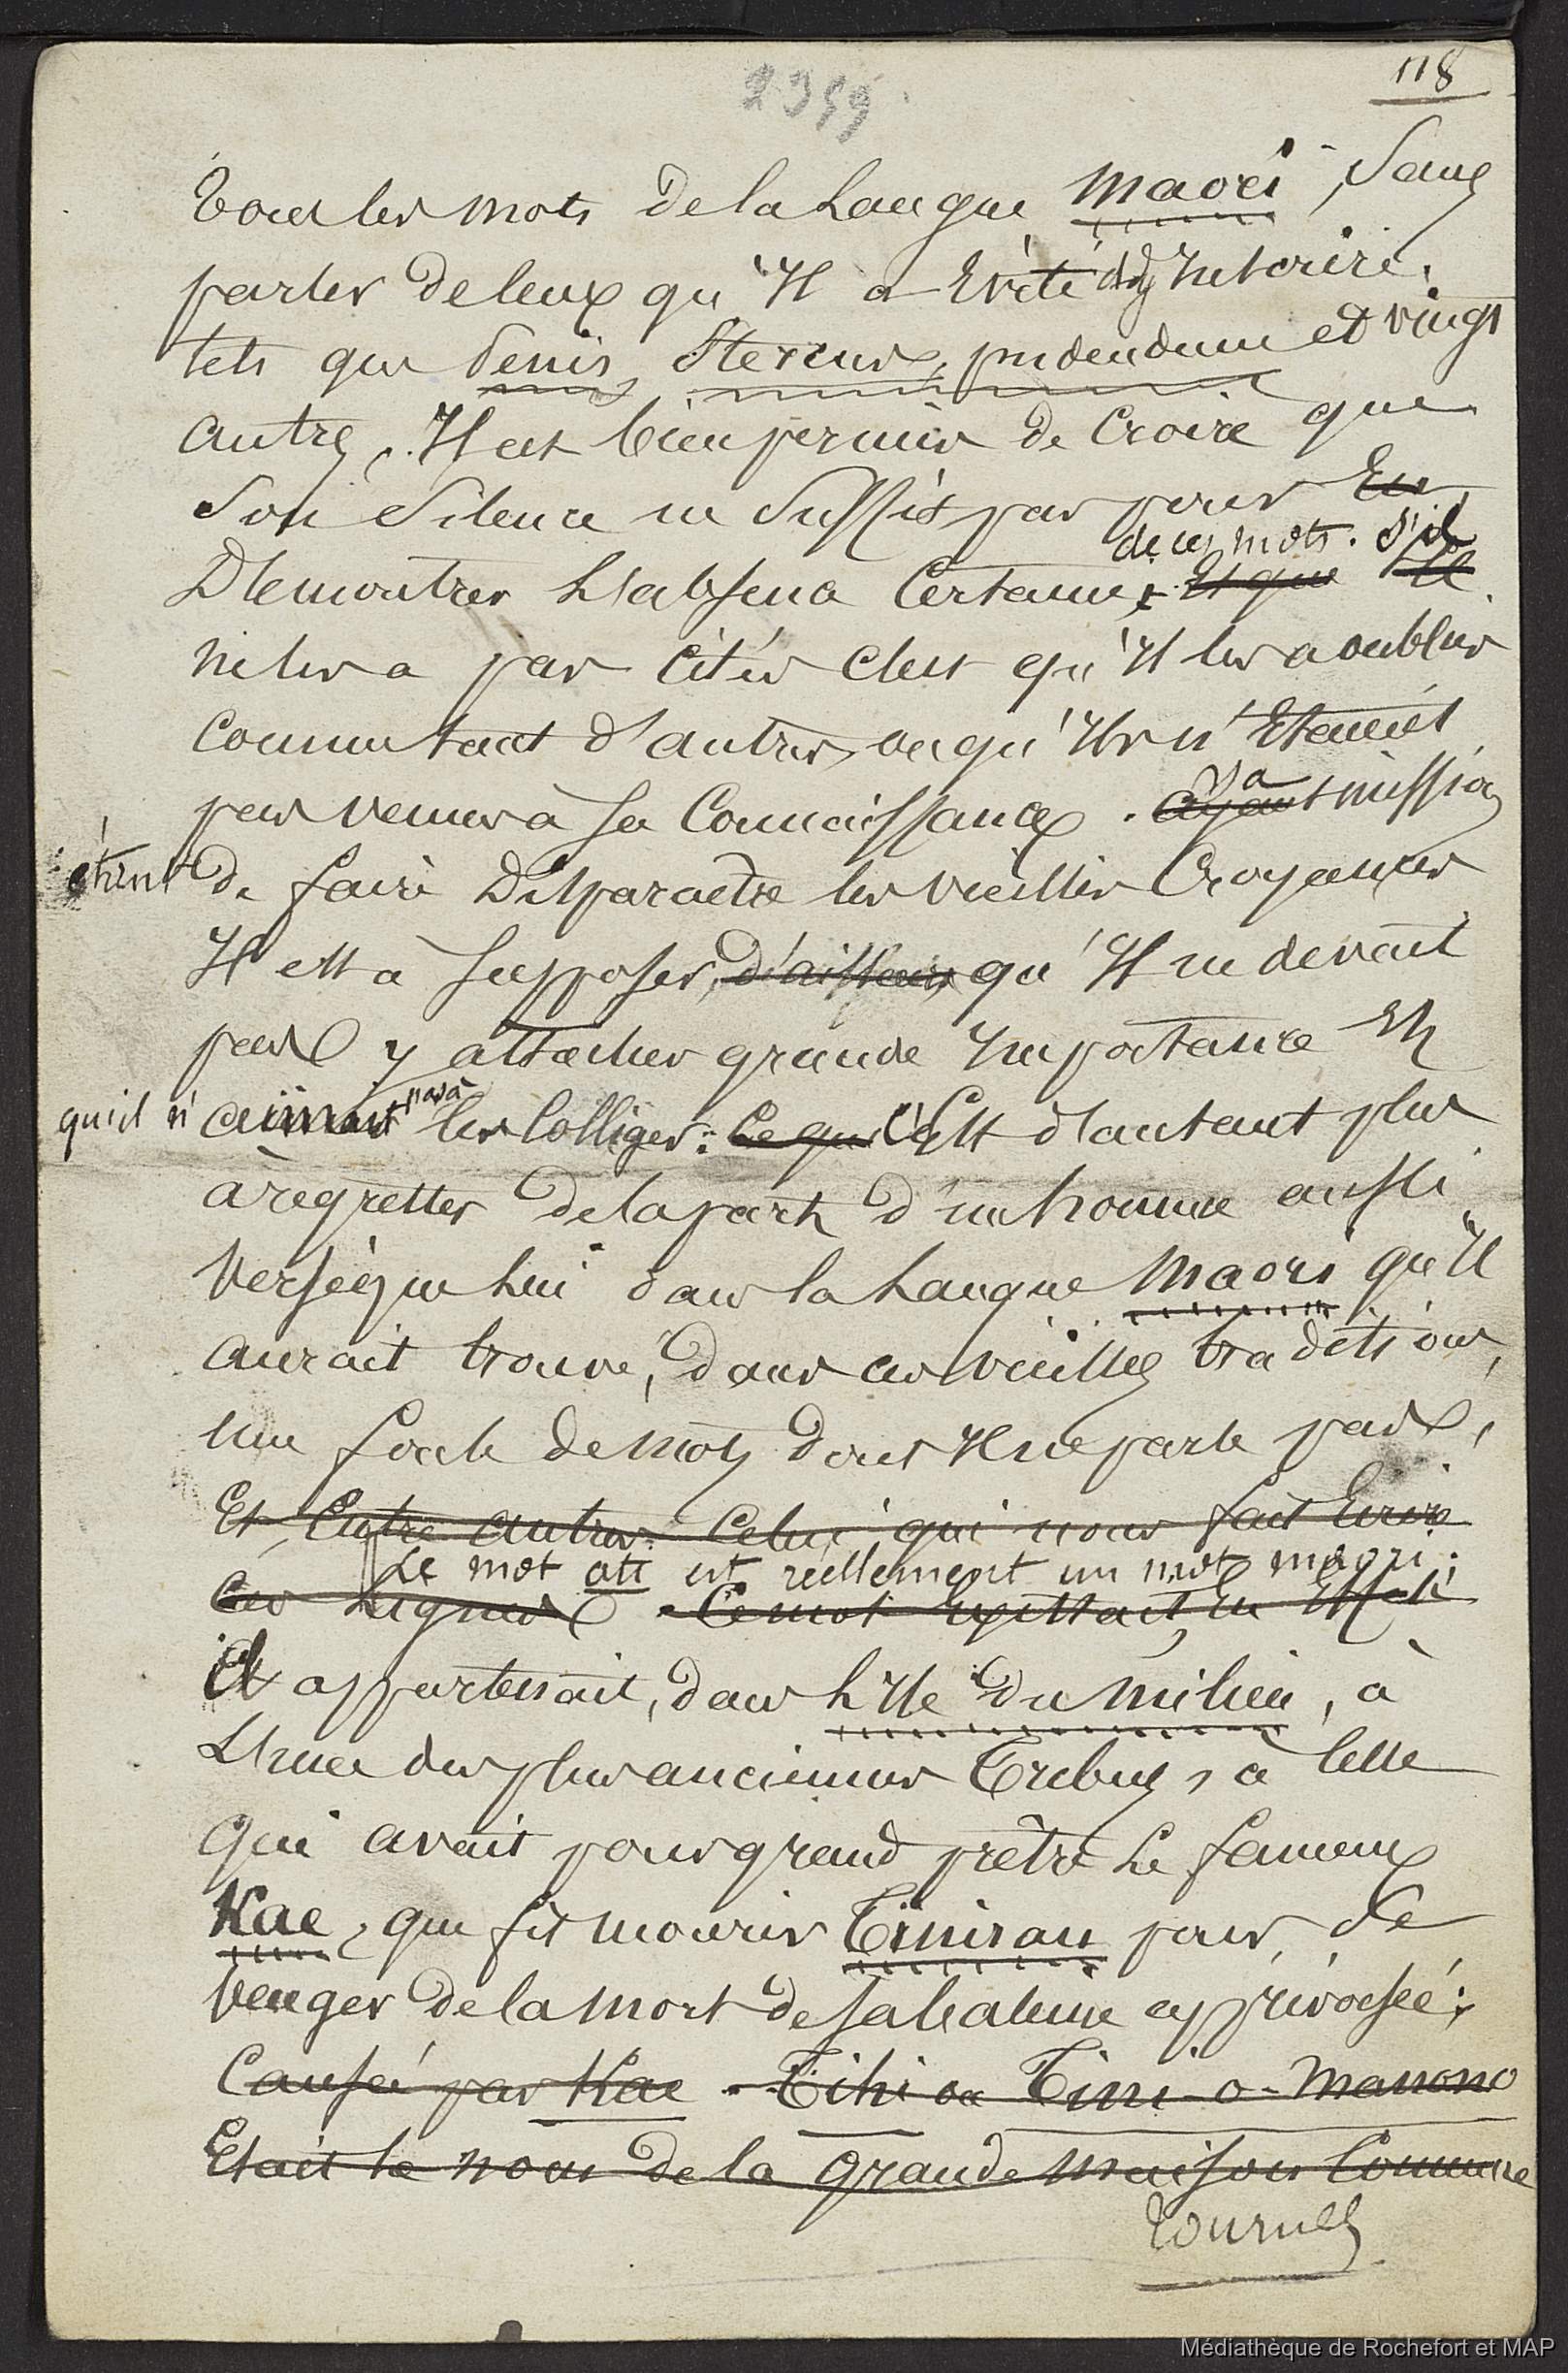 118
2359
tous les mots de la Langue Maori, Sans
parler de ceux qu'Il a Evité d'y Inscrire,
tels que Penis, Stercus, pudendum et vingt
autres. Il est bien permis de Croire que
Son Silence ne Suffit pas pour En
de ces mots. S'il
Démontrer L'absence Certaine, Et que Il
ne les a pas Cités C'est qu'Il les a oubliés
Comme tant d'autres, ou qu'Ils n'Etaient
pas venus à Sa Connaissance. ayant Sa mission
étant de faire Disparaitre les vieilles Croyances
Il est à Supposer, d'ailleurs, qu'Il ne devait
pas y attacher grande Importance Et
qu'il n' aimait pas à les Colliger: Ce qui C'Est d'autant plus
à regretter de la part d'un homme aussi
Versé que Lui dans la Langue Maori qu'Il
aurait trouvé, dans ces vieilles traditions,
une foule de mots dont Il ne parle pas,
Et, Entre autres: Celui qui nous fait Ecrire
Le mot ati est réellement un mot maori;
Ces Lignes. Ce mot Existait, En Effet
Il appartenait, dans L'Ile du Milieu, à
L'une des plus anciennes Tribus, à Celle
qui avait pour grand prêtre Le fameux
Kae, que fit mourir Tinirau pour Se
Venger de la Mort de Sa baleine apprivoisée;
Causée par Kae. Tihi ou Tini-o-Manono
Etait le nom de la grande Maison Commune
tournez
Médiathèque de Rochefort et MAP